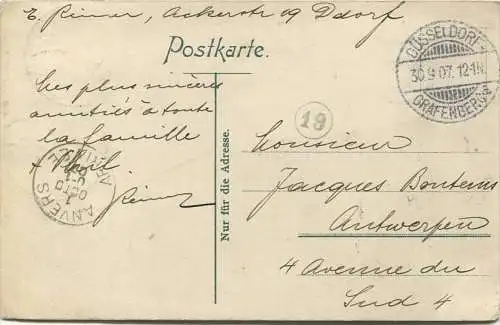 E. Rimer, Ackerstr 29 Ddorf.
Postkarte.
DÜSSELDORF
30.9.07. 12-1N.
GRAFENBERG
19
Les plus sincères
amitiés à toute
la famille
ANVERS
1
OCTO
Nur für die Adresse.
Monsieur
Jacques Bontems
Antwerpen
4 Avenue du
Sud 4